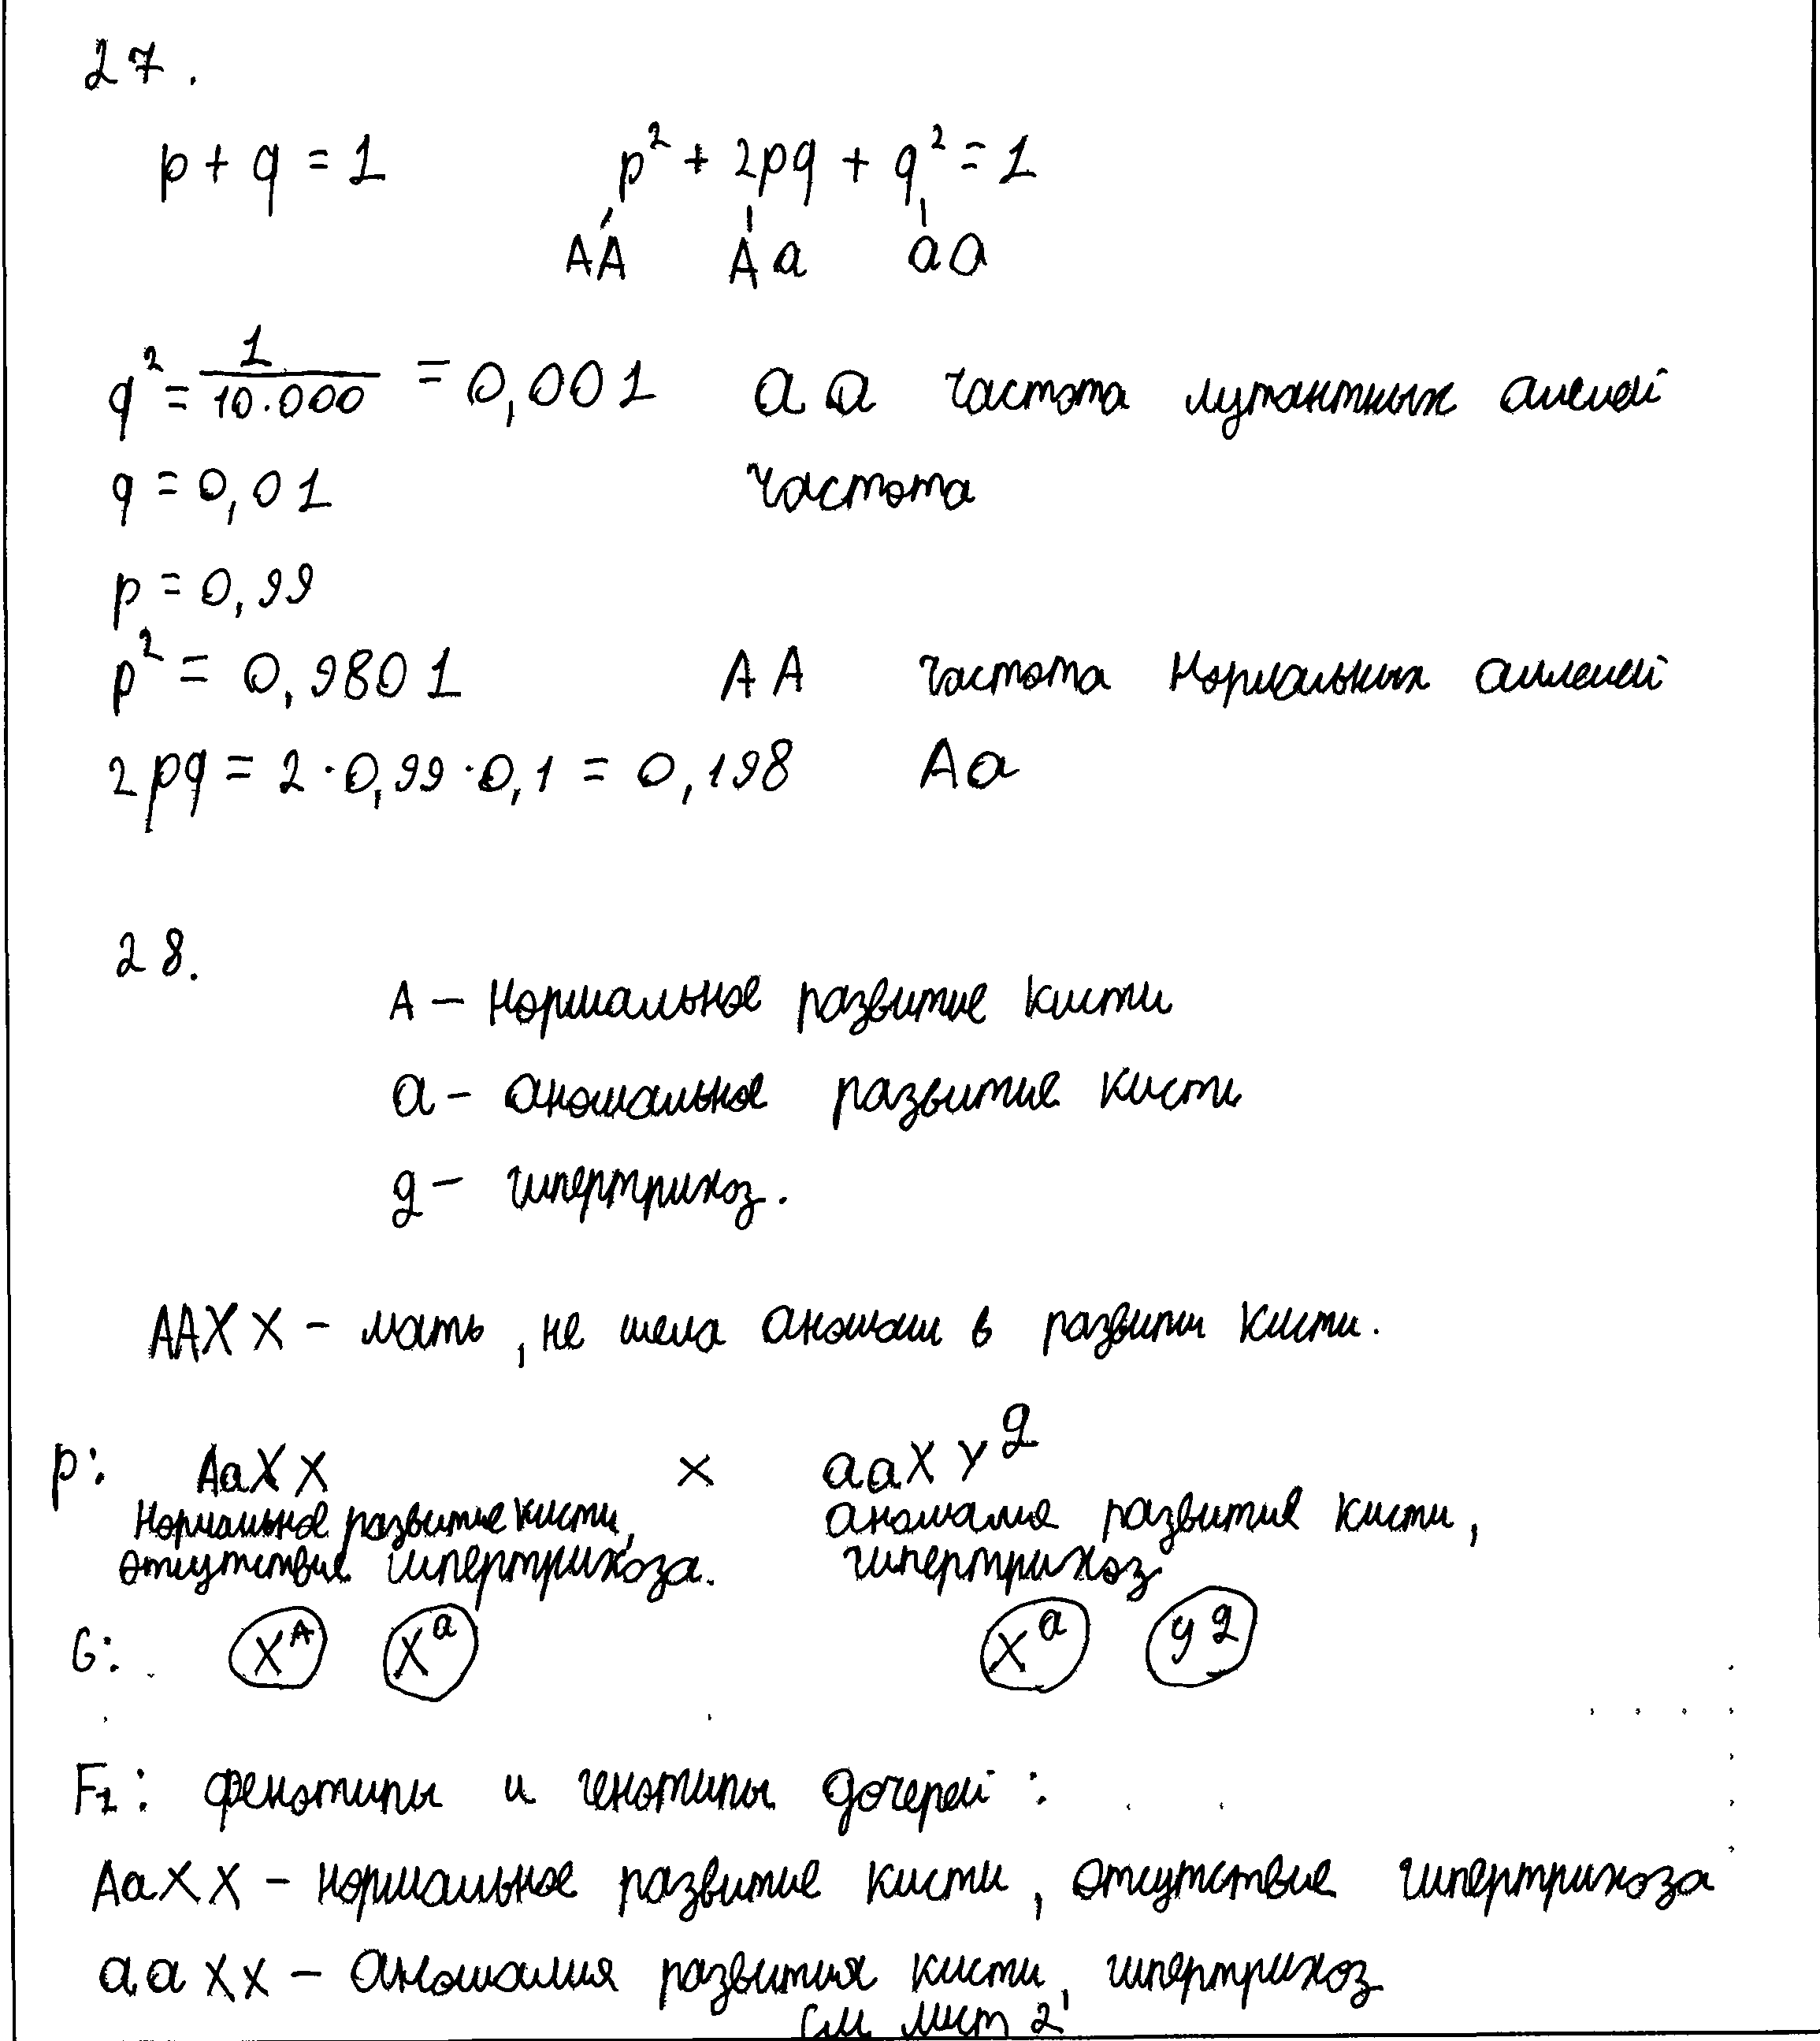 27.
p + q = 1 p² + 2pq + q² = 1
AA Aa aa
q² = 1/10.000 = 0,001 aa частота мутантных аллелей
q = 0,01 частота
p = 0,99
p² = 0,9801 AA частота нормальных аллелей
2pq = 2·0,99·0,1 = 0,198 Aa
28.
A – нормальное развитие кисти
a – аномальное развитие кисти
g – гипертрихоз.
AAXX – мать, не имела аномали в развити кисти.
P: AaXX × aaXY^g
нормальное развитие кисти, аномалия развития кисти,
отсутствие гипертрихоза. гипертрихоз
G: X^A X^a X^a y^g
F1: фенотипы и генотипы дочерей:
AaXX – нормальное развитие кисти, отсутствие гипертрихоза
aaXX – аномалия развития кисти, гипертрихоз
см лист 2